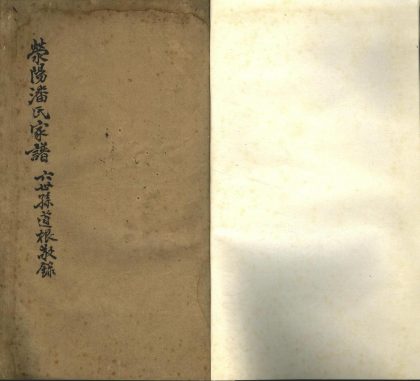 滎陽潘氏家譜
六世孫道根敬錄